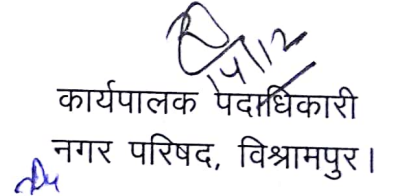 14/12
कार्यपालक पदाधिकारी
नगर परिषद, विश्रामपुर।